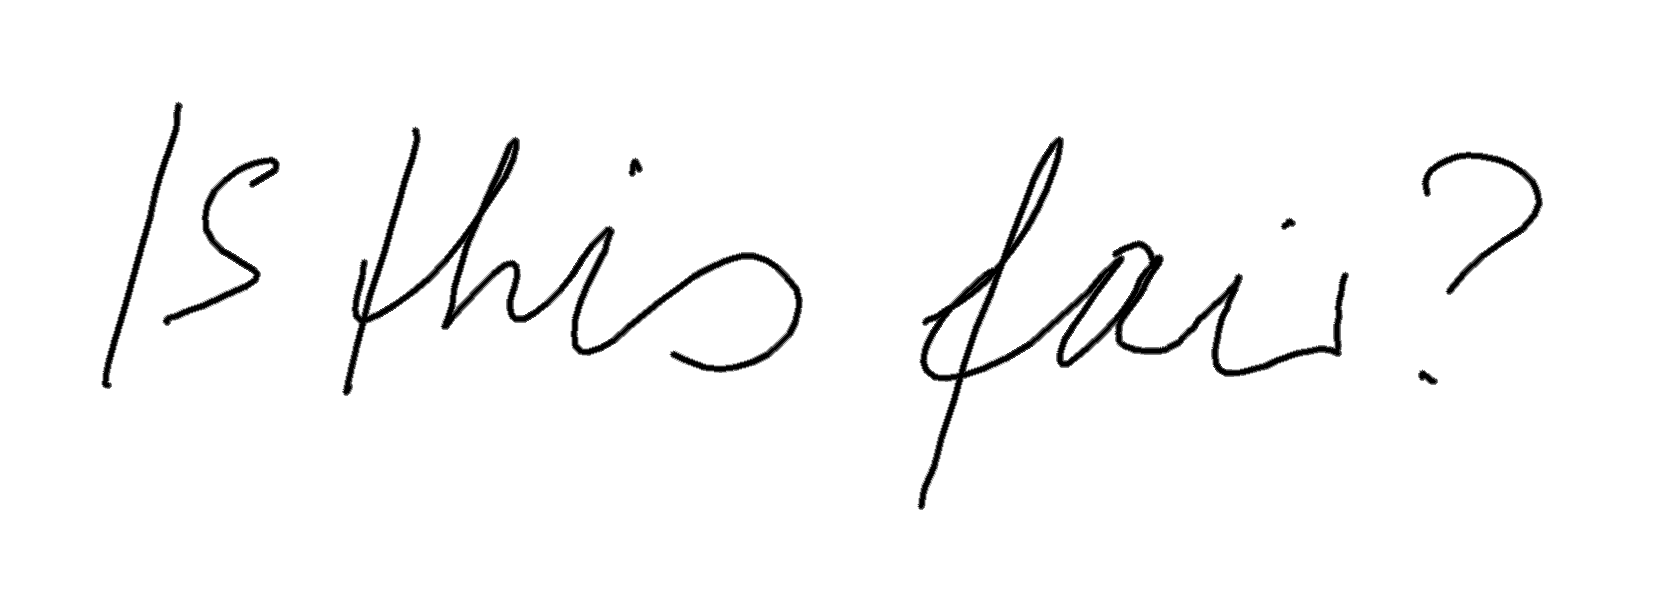 Is this fair?